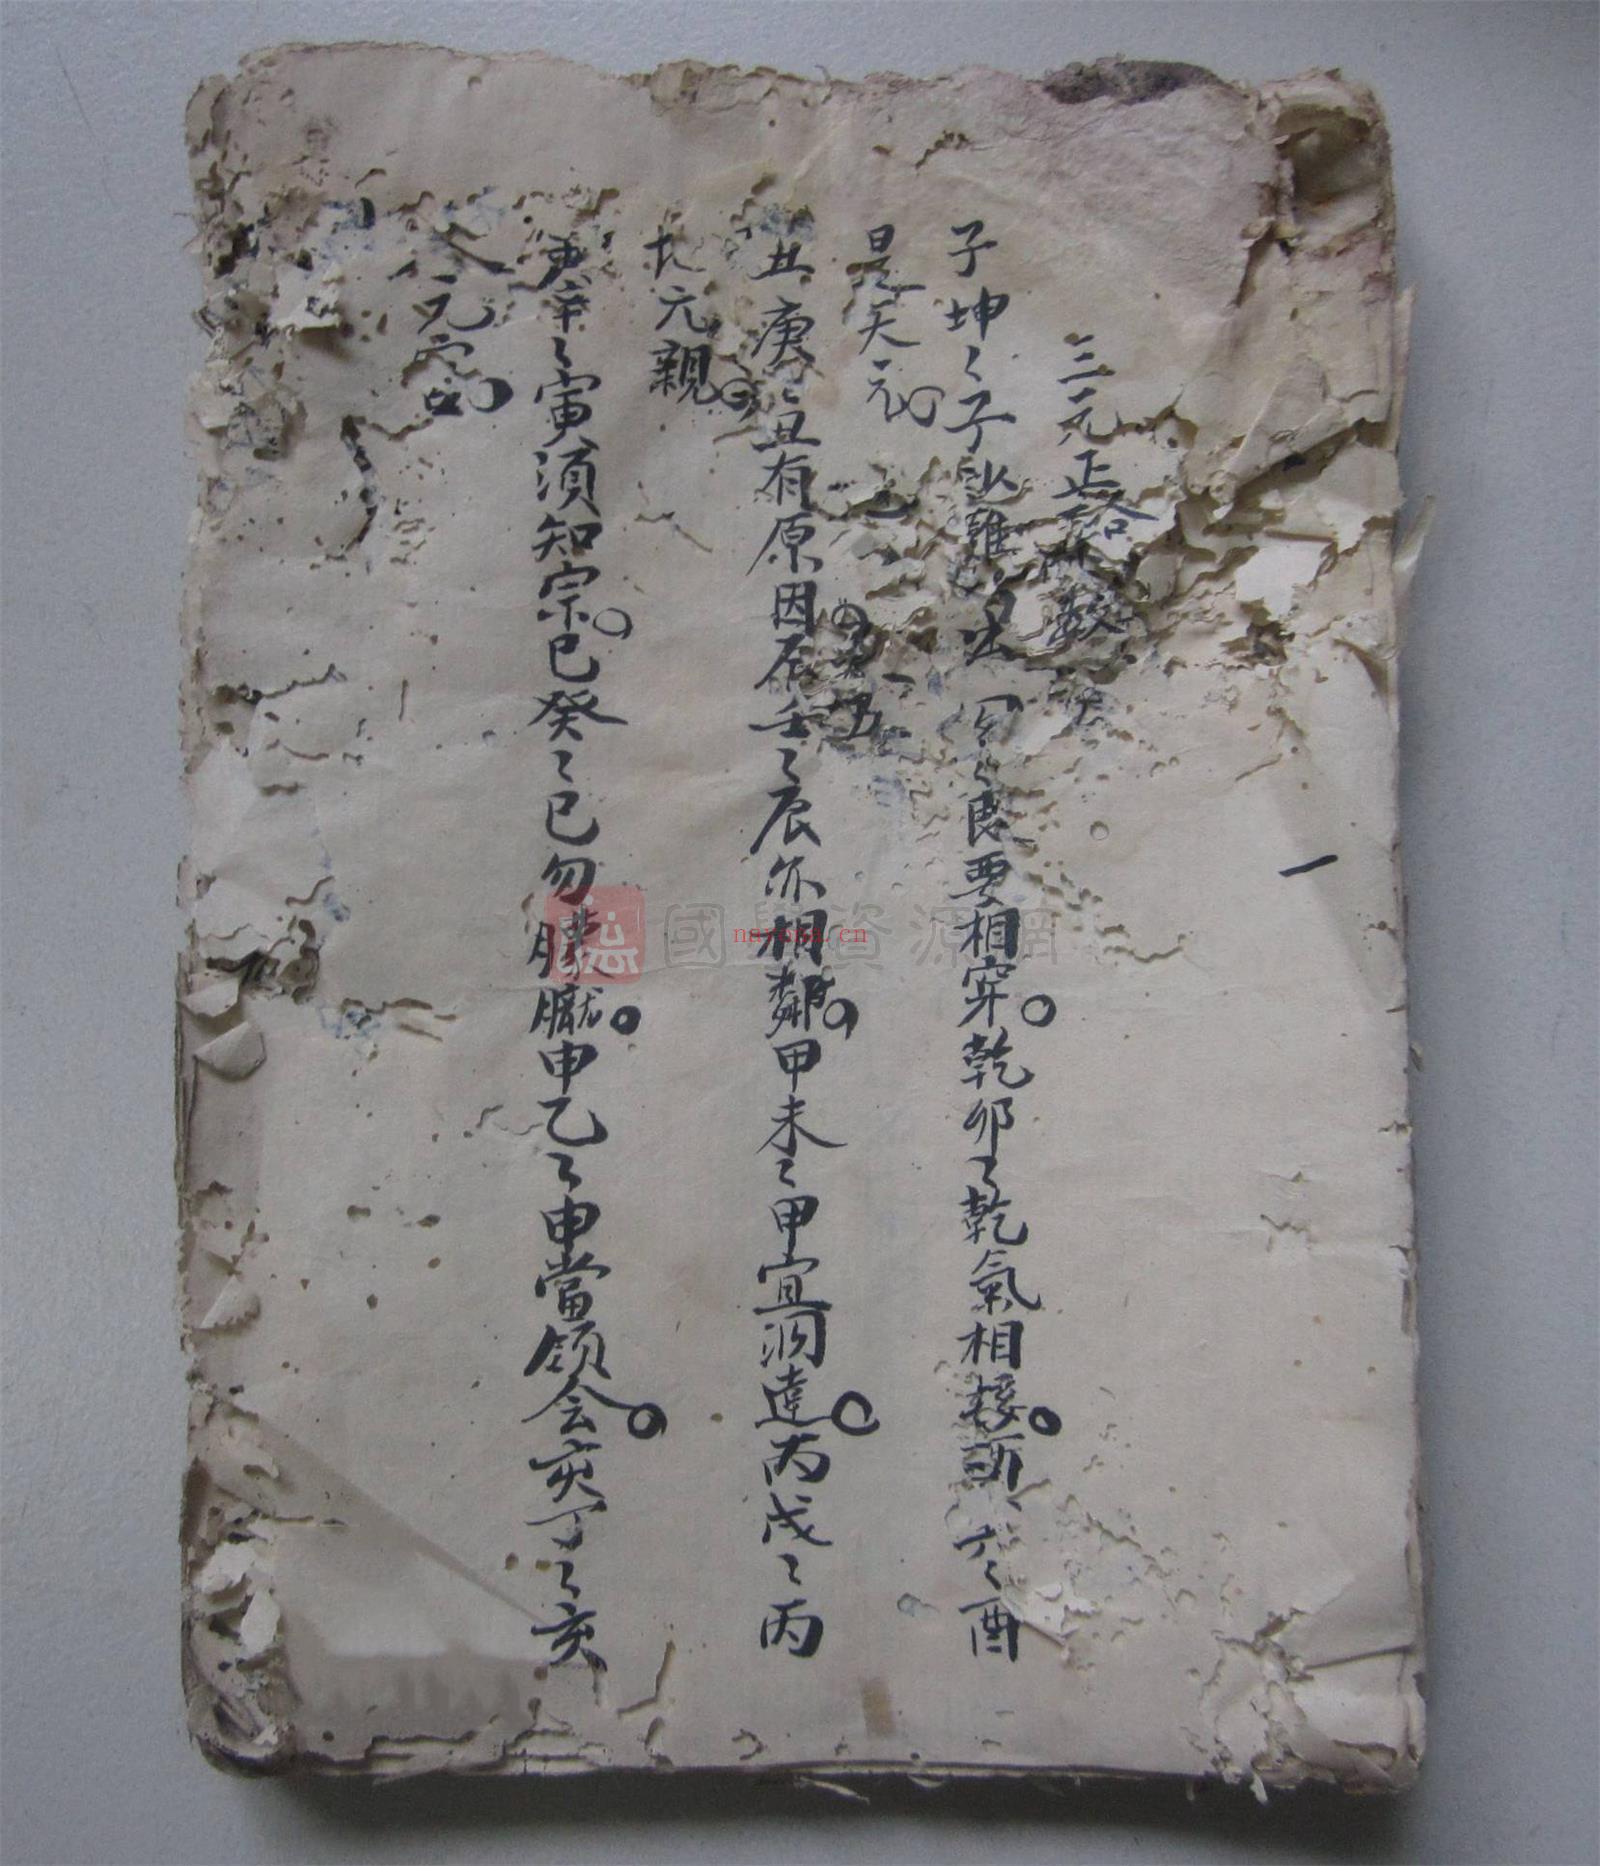 一
三元正 数
子坤〻子 離 出 〻良要相穿乾卯〻乾氣相接酉 六〻酉
是天元
丑庚〻丑有原因辰壬〻辰亦相鄰甲未〻甲宜洞達丙戌〻丙
地元親
寅辛〻寅須知宗巳癸〻巳勿朦朧申乙〻申當領会亥丁〻亥
人元
國學資源網
nayona.cn